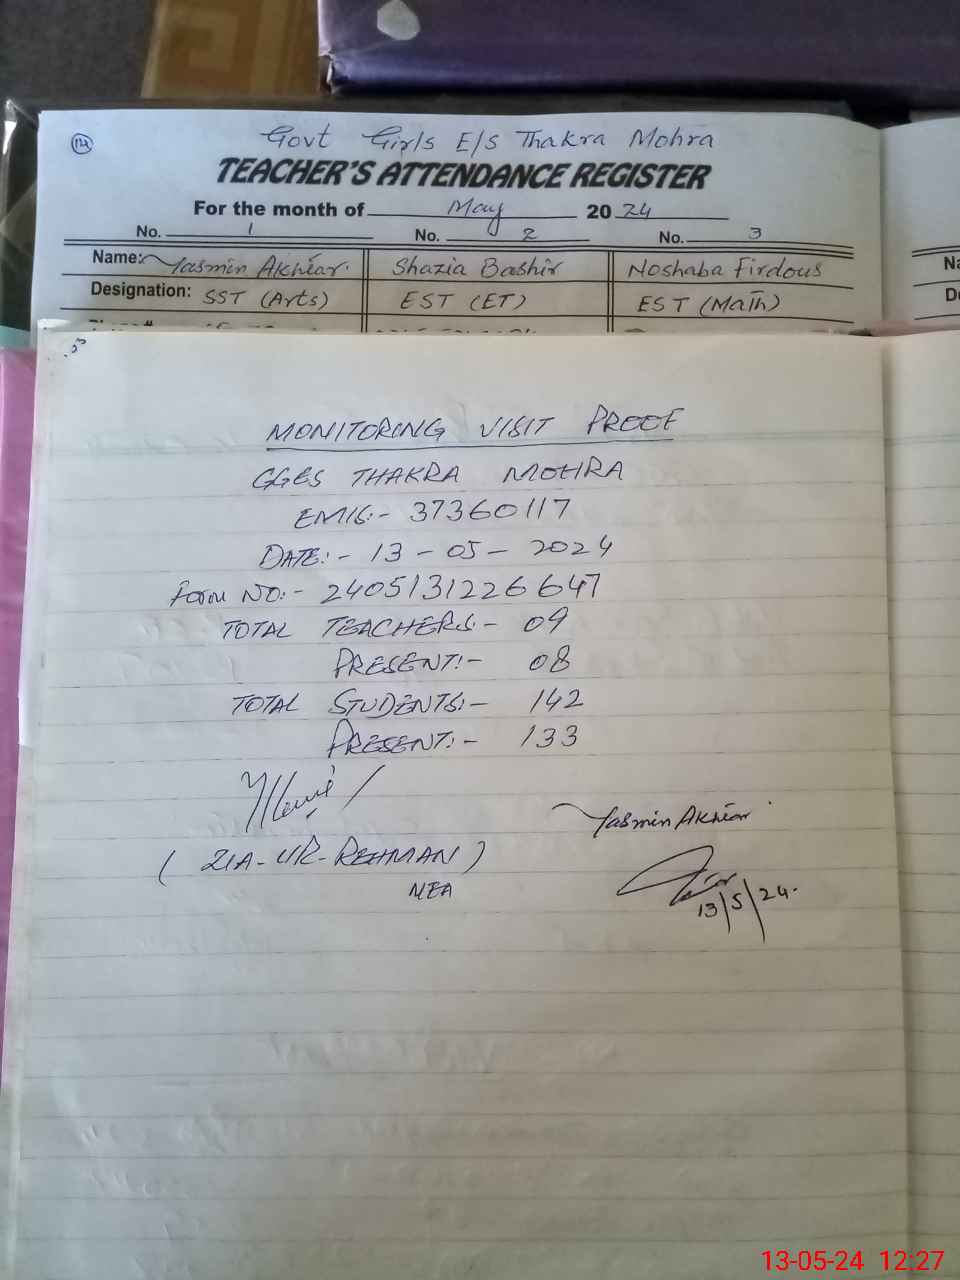 Govt Girls E/S Thakra Mohra
TEACHER'S ATTENDANCE REGISTER
For the month of May 2024
No. 1 No. 2 No. 3
Name: Yasmin Akhtar. Shazia Bashir Noshaba Firdous Na
Designation: SST (Arts) EST (ET) EST (Math) De
MONITORING VISIT PROOF
GGES THAKRA MOHRA
EMIS:- 37360117
DATE:- 13-05-2024
Form NO:- 2405131226647
TOTAL TEACHERS:- 09
PRESENT:- 08
TOTAL STUDENTS:- 142
PRESENT:- 133
Yasmin Akhtar
(ZIA-UR-REHMAN)
MEA
13/5/24.
13-05-24 12:27